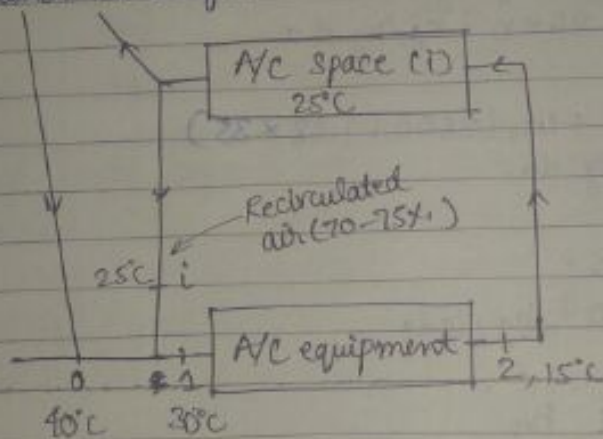 A/C space (i)
25°C
Recirculated
air (70-75%)
25°C i
A/C equipment
0 1 2, 15°C
40°C 30°C